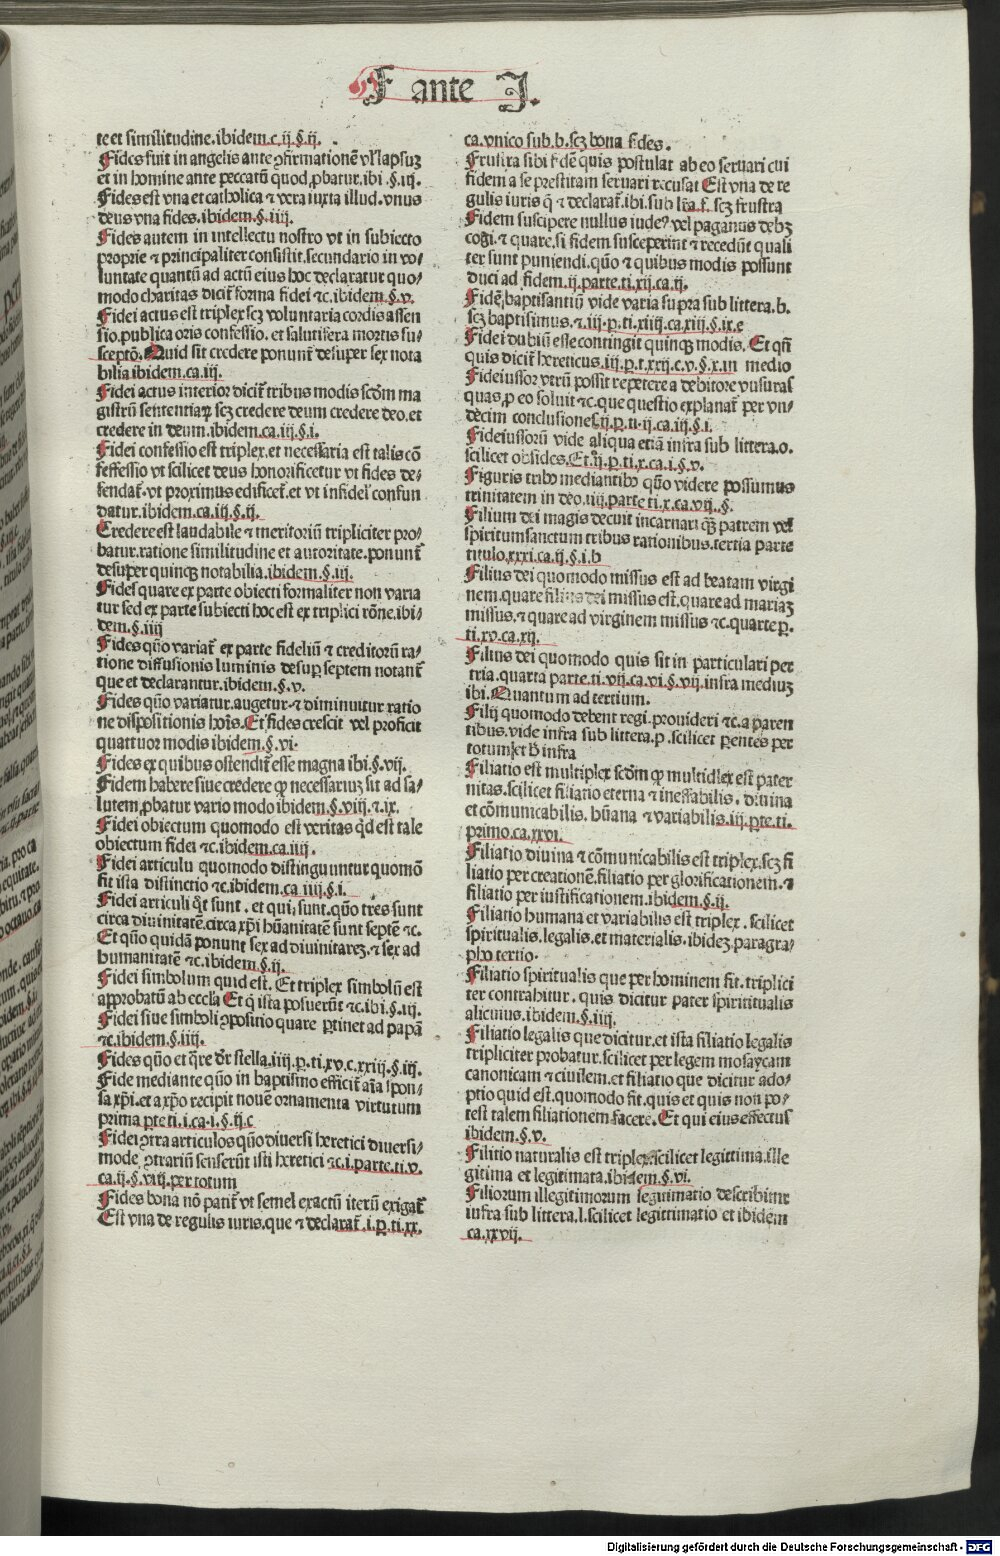 F ante I.
te et similitudine.ibidem.c.ij.§.ij.
Fides fuit in angelis ante ꝯfirmationē vl' lapsuꝫ
et in homine ante peccatū quod ꝓbatur.ibi.§.iij.
Fides est vna et catholica ⁊ vera iuxta illud.vnus
deus vna fides.ibidem.§.iiij.
Fides autem in intellectu nostro vt in subiecto
proprie ⁊ principaliter consistit.secundario in vo⸗
luntate quantū ad actū eius hoc declaratur quo⸗
modo charitas dicit̄ forma fidei ⁊c.ibidem.§.v.
Fidei actus est triplex scꝫ voluntaria cordis assen
sio.publica oris confessio.et salutifera mortis su⸗
sceptō.Quid sit credere ponunt̄ desuper sex nota
bilia ibidem.ca.iij.
Fidei actus interior dicit̄ tribus modis scd̄m ma
gistrū sententiaꝝ scꝫ credere deum credere deo.et
credere in deum.ibidem.ca.iij.§.i.
Fidei confessio est triplex.et necessaria est talis cō
feffessio vt scilicet deus honorificetur vt fides de⸗
fendat̄.vt proximus edificet̄.et vt infidel' confun
datur.ibidem.ca.iij.§.ij.
Credere est laudabile ⁊ meritoriū tripliciter pro⸗
batur.ratione similitudine et autoritate.ponunt̄
desuper quinqꝫ notabilia.ibidem.§.iij.
Fides quare ex parte obiecti formaliter non varia
tur sed ex parte subiecti hoc est ex triplici rōne.ibi⸗
dem.§.iiij
Fides quō variat̄ ex parte fidelíū ⁊ creditorū ra⸗
tione diffusionis luminis desuꝑ septem notant̄
que et declarantur.ibidem.§.v.
Fides quō variatur.augetur.⁊ diminuitur ratio
ne dispositionis hoīs.Et fides crescit vel proficit
quattuor modis ibidem.§.vi.
Fides ex quibus ostendit̄ esse magna ibi.§.vij.
Fidem habere siue credere ꝙ necessariuꝫ sit ad sa⸗
lutem ꝓbatur vario modo ibidem.§.viij.⁊.ix.
Fidei obiectum quomodo est veritas qd̄ est tale
obiectum fidei ⁊c.ibidem.ca.iiij.
Fidei articulu quomodo distinguuntur quomō
fit ista distinctio ⁊c.ibidem.ca iiij.§.i.
Fidei articuli q̄t sunt.et qui sunt.quō tres sunt
circa diuinitatē.circa xp̄i hūanitatē sunt septē ⁊c.
Et quō quidā ponunt sex ad diuinitareꝫ.⁊ sex ad
humanitatē ⁊c.ibidem.§.ij.
Fidei simbolum quid est. Et triplex simbolū est
approbatū ab eccl'ia Et q̄ ista posuerūt ⁊c.ibi.§.iij.
Fidei siue simboli ꝯpositio quare ꝑtinet ad papā
⁊c.ibidem.§.iiij.
Fides quō et q̄re dr̄ stella.iiij.ꝑ.ti.xv.c.xxiij.§.iij.
Fide mediante quō in baptismo efficit̄ aīa spon⸗
sa xp̄i.et a xp̄o recipit nouē ornamenta virtutum
prima ꝑte ti.i.ca.i.§.ij.c
Fidei ꝯtra articulos quō diuersi heretici diuersi⸗
mode ꝯtrariū senserūt isti heretici ⁊c.i.parte.ti.v.
ca.ij.§.viij.per totum
Fides bona nō patit̄ vt semel exactū iterū exigat̄
Est vna de regulis iuris.que ⁊ declarat̄.i.ꝑ.ti.xx.
ca.vnico sub.b.scꝫ bona fides.
Frustra sibi fidē quis postulat ab eo seruari cui
fidem a se prestitam seruari recusat Est vna de re
gulis iuris q̄ ⁊ declarat̄.ibi.sub lr̄a.f.scꝫ frustra
Fidem suscipere nullus iudeꝰ vel paganus debꝫ
cogi.⁊ quare.si fidem susceperint ⁊ recedūt quali
ter sunt puniendi.quō ⁊ quibus modis possunt
duci ad fidem.ij.parte.ti.xij.ca.ij.
Fidē baptisantiū vide varia supra sub littera.b.
scꝫ baptismus.⁊.iij.p.ti.xiiij.ca.xiij.§.ix.e
Fidei dubiū esse contingit quinqꝫ modis. Et qn̄
quis dicit̄ hereticus.iij.p.t.xxij.c.v.§.x.in medio
Fideiussor vtrū possit repetere a debitore vsuras
quas ꝓ eo soluit ⁊c.que questio explanat̄ per vn⸗
decim conclusiones.ij.ꝑ.ti.ij.ca.iij.§.i.
Fideiussorū vide aliqua etiā infra sub littera.o.
scilicet obsides.Et.ij.ꝑ.ti.x.ca.i.§.v.
Figuris tribꝰ mediantibꝰ quō videre possumus
trinitatem in deo.iiij.parte ti.x.ca.vij.§.
Filium dei magis decuit incarnari qꝫ patrem vel
spiritumsanctum tribus rationibus.tertia parte
titulo.xxxi.ca.ij.§.i.b
Filius dei quomodo missus est ad beatam virgi
nem.quare filius dei missus est.quare ad mariaꝫ
missus.⁊ quare ad virginem missus ⁊c.quarte ꝑ.
ti.xv.ca.xij.
Filius dei quomodo quis sit in particulari per
tria.quarta parte.ti.vij.ca.vi.§.vij.infra mediuꝫ
ibi.Quantum ad tertium.
Filij quomodo debent regi.prouideri ⁊c.a paren
tibus.vide infra sub littera.p.scilicet ꝑentes per
totum et b infra
Filiatio est multiplex scd̄m ꝙ multidlex est pater
nitas.scilicet filiatio eterna ⁊ ineffabilis. diuina
et cōmunicabilis. hūana ⁊ variabilis.iij.ꝑte.ti.
primo.ca.xxvi.
Filiatio diuina ⁊ cōmunicabilis est triplex.scꝫ fi
liatio per creationē.filiatio per glorificationem.⁊
filiatio per iustificationem.ibidem.§.ij.
Filiatio humana et variabilis est triplex. scilicet
spiritualis.legalis.et materialis.ibideꝫ.paragra⸗
pho tertio.
Filiatio spiritualis que per hominem fit.triplici
ter contrahitur. quis dicitur pater spirititualis
alicuius.ibidem.§.iiij.
Filiatio legalis que dicitur.et ista filiatio legalis
tripliciter probatur.scilicet per legem mosaycam
canonicam ⁊ ciuilem.et filiatio que dicitur ado⸗
ptio quid est.quomodo fit.quis et quis non po⸗
test talem filiationem facere.Et qui eius effectus
ibidem.§.v.
Filitio naturalis est triplex.scilicet legittima.ille
gitima et legitimata.ibidem.§.vi.
Filiorum illegitimorum leguimatio describitur
iufra sub littera.l.scilicet legittimatio et ibidem
ca.xxvij.
Digitalisierung gefördert durch die Deutsche Forschungsgemeinschaft - DFG